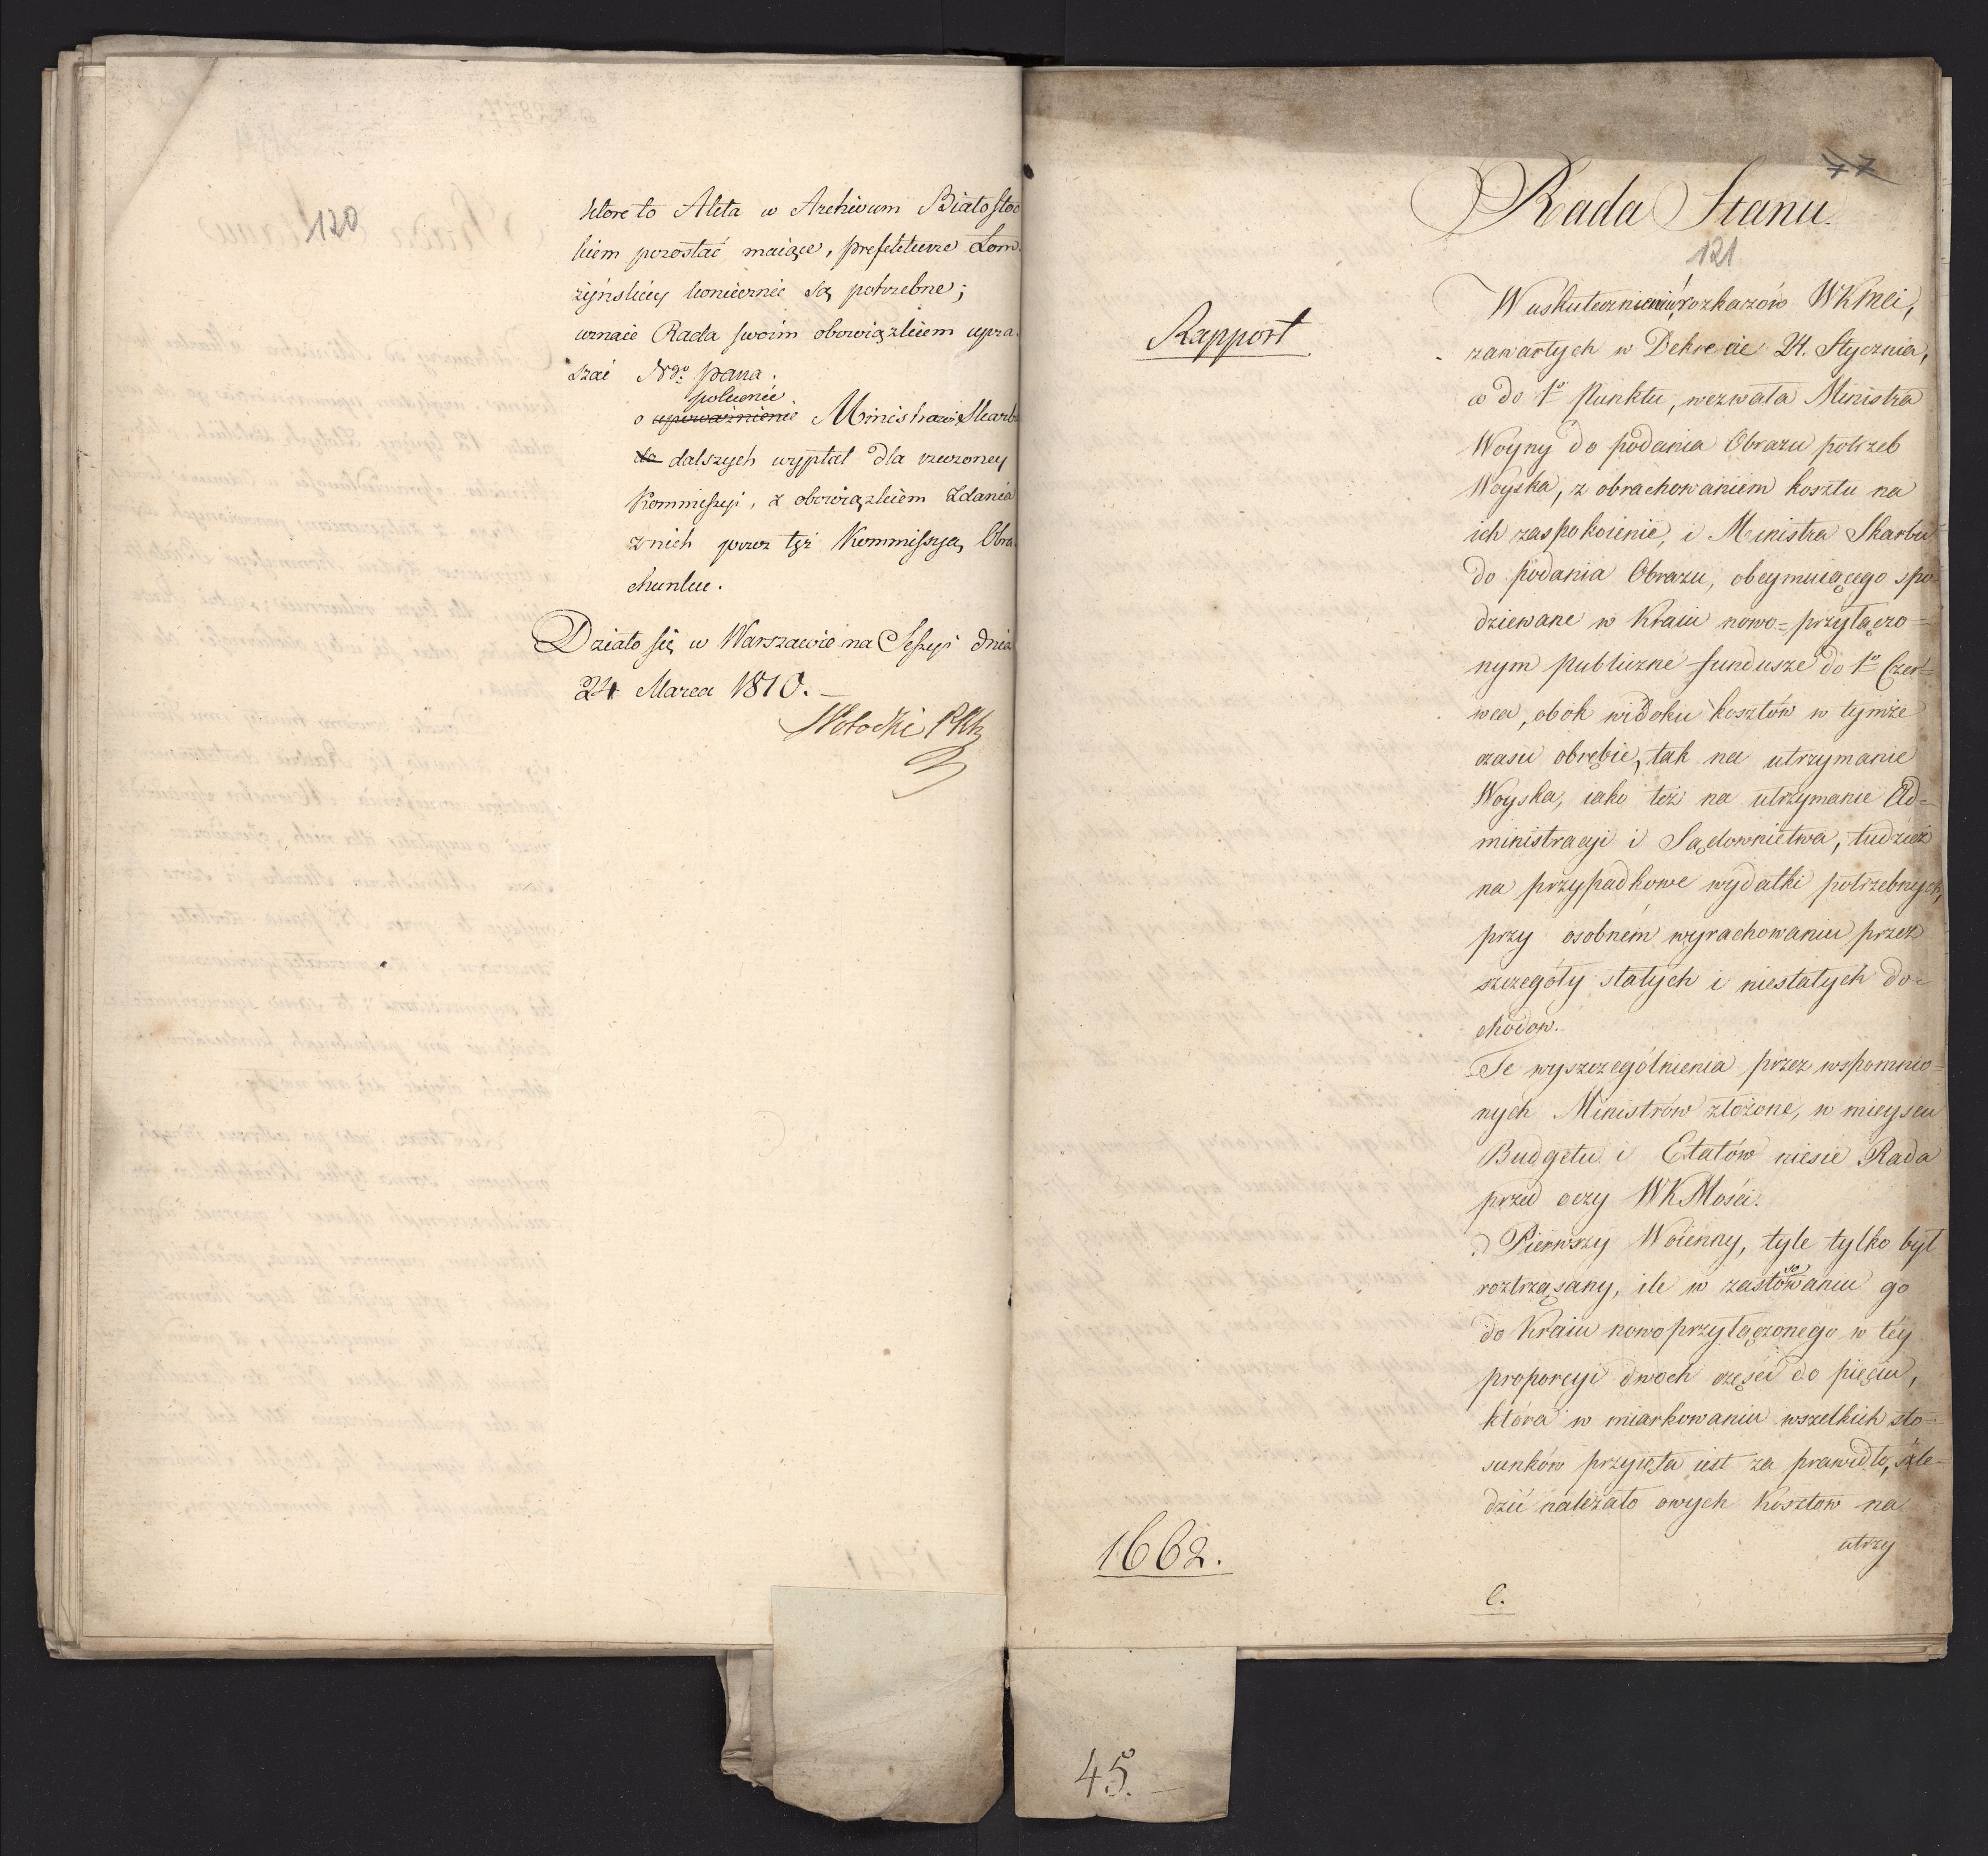 120
które to Akta w Archiwum Białostoc
kiem pozostać maiące, prefekturze Łom
żyńskiey koniecznie są potrzebne;
uznaie Rada swoim obowiązkiem upra
szać N⁰ pana.
polecenie
o upoważnienie Ministrowi Skarbu
do dalszych wypłat dla rzeczoney
Kommissyi, z obowiązkiem zdania
z nich przez tęż Kommissyą Obra
chunku.
Działo się w Warszawie na Sessyi dnia
24 Marca 1810.
77
Rada Stanu.
121
Rapport
W uskutecznieniu rozkazów WKMci,
zawartych w Dekrecie 24. Stycznia,
co do 1º Punktu, wezwała Ministra
Woyny do podania Obrazu potrzeb
Woyska, z obrachowaniem kosztu na
ich zaspokoienie, i Ministra Skarbu
do podania Obrazu, obeymuiącego spo=
dziewane w Kraiu nowo=przyłączo=
nym publiczne fundusze do 1º Czer=
wca, obok widoku kosztów w tymże
czasu obrębie, tak na utrzymanie
Woyska, iako też na utrzymanie Ad=
ministracyi i Sądownictwa, tudzież
na przypadkowe wydatki potrzebnych,
przy osobném wyrachowaniu przez
szczegóły stałych i niestałych do=
chodów.
Te wyszczególnienia przez wspomnio=
nych Ministrów złożone, w mieyscu
Budgetu i Etatów niesie Rada
przed oczy WKMości.
Pierwszy Woienny, tyle tylko był
roztrząsany, ile w zastosowaniu go
do Kraiu nowoprzyłączonego w téy
proporcyi dwoch części do pięciu,
która w miarkowaniu wszelkich sto=
sunków przyięta iest za prawidło, śle=
dzić należało owych Kosztow na
utrzy
1662.
C.
45.